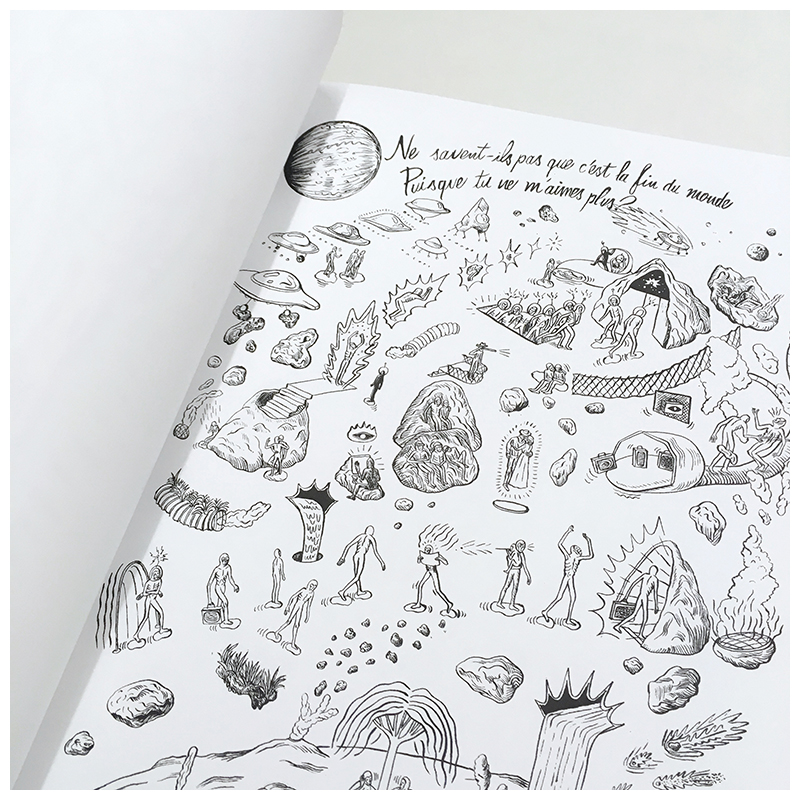 Ne savent-ils pas que c'est la fin du monde
Puisque tu ne m'aimes plus?